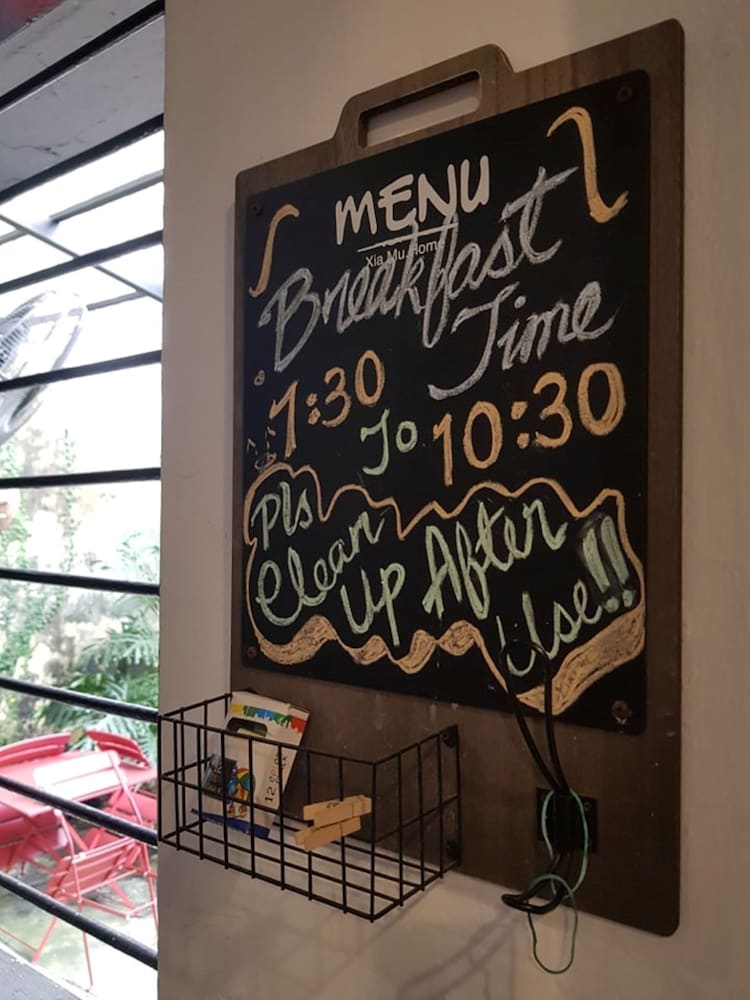 MENU
Xia Mu Home
Breakfast
Time
7:30 To 10:30
Pls
Clean
Up After
Use!!